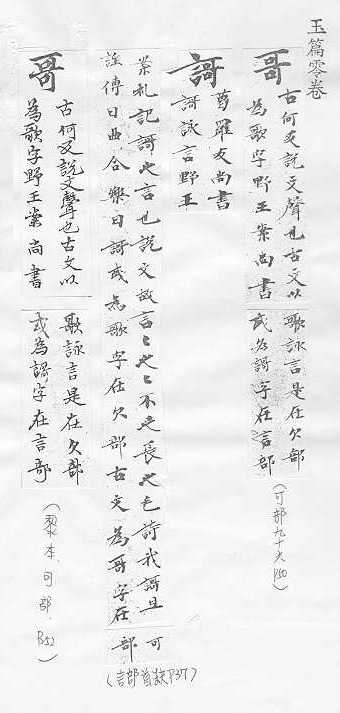 玉篇零卷
哥
古何反說文聲也古文以
為歌字野王案尚書
歌詠言是在欠部
或為謌字在言部
(可部九十六 P50)
謌
葛羅反尚書
謌詠言野王
案礼記謌之言也說文故言之也之不之長之也毛詩我謌且
詮傳曰曲合樂曰謌或為歌字在欠部古文為哥字在
可
部
(言部首缺P37)
哥
古何反說文聲也古文以
為歌字野王案尚書
歌詠言是在欠部
或為謌字在言部
(黎本、可部、P52)